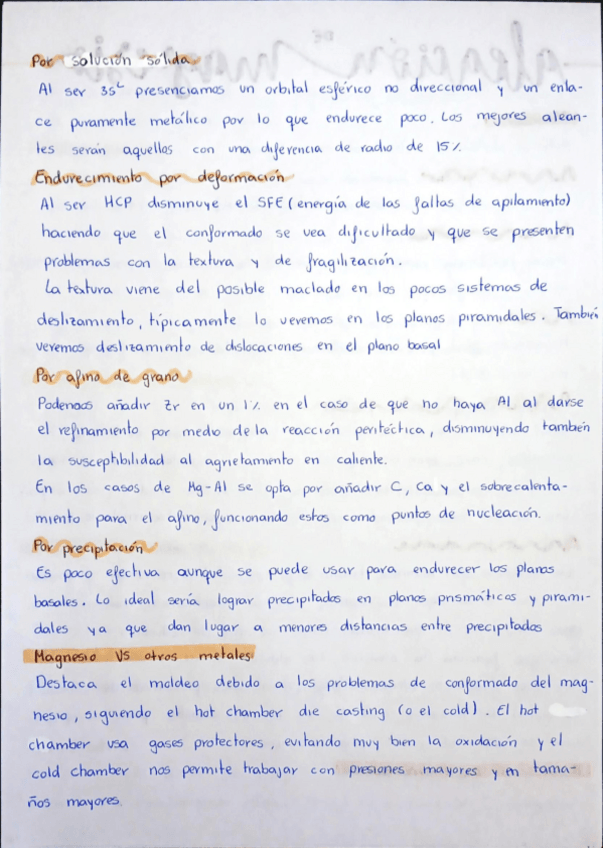 Por solución sólida
Al ser 3s² presenciamos un orbital esférico no direccional y un enla-
ce puramente metálico por lo que endurece poco. Los mejores alean-
tes serán aquellos con una diferencia de radio de 15%
Endurecimiento por deformación
Al ser HCP disminuye el SFE (energía de las faltas de apilamiento)
haciendo que el conformado se vea dificultado y que se presenten
problemas con la textura y de fragilización.
La textura viene del posible maclado en los pocos sistemas de
deslizamiento, típicamente lo veremos en los planos piramidales. También
veremos deslizamiento de dislocaciones en el plano basal
Por afino de grano
Podemos añadir Zr en un 1% en el caso de que no haya Al al darse
el refinamiento por medio de la reacción peritéctica, disminuyendo también
la susceptibilidad al agrietamiento en caliente.
En los casos de Mg-Al se opta por añadir C, Ca y el sobrecalenta-
miento para el afino, funcionando estos como puntos de nucleación.
Por precipitación
Es poco efectiva aunque se puede usar para endurecer los planos
basales. Lo ideal sería lograr precipitados en planos prismáticos y pirami-
dales ya que dan lugar a menores distancias entre precipitados
Magnesio VS otros metales
Destaca el moldeo debido a los problemas de conformado del mag-
nesio, siguiendo el hot chamber die casting (o el cold). El hot
chamber usa gases protectores, evitando muy bien la oxidación y el
cold chamber nos permite trabajar con presiones mayores y en tama-
ños mayores.